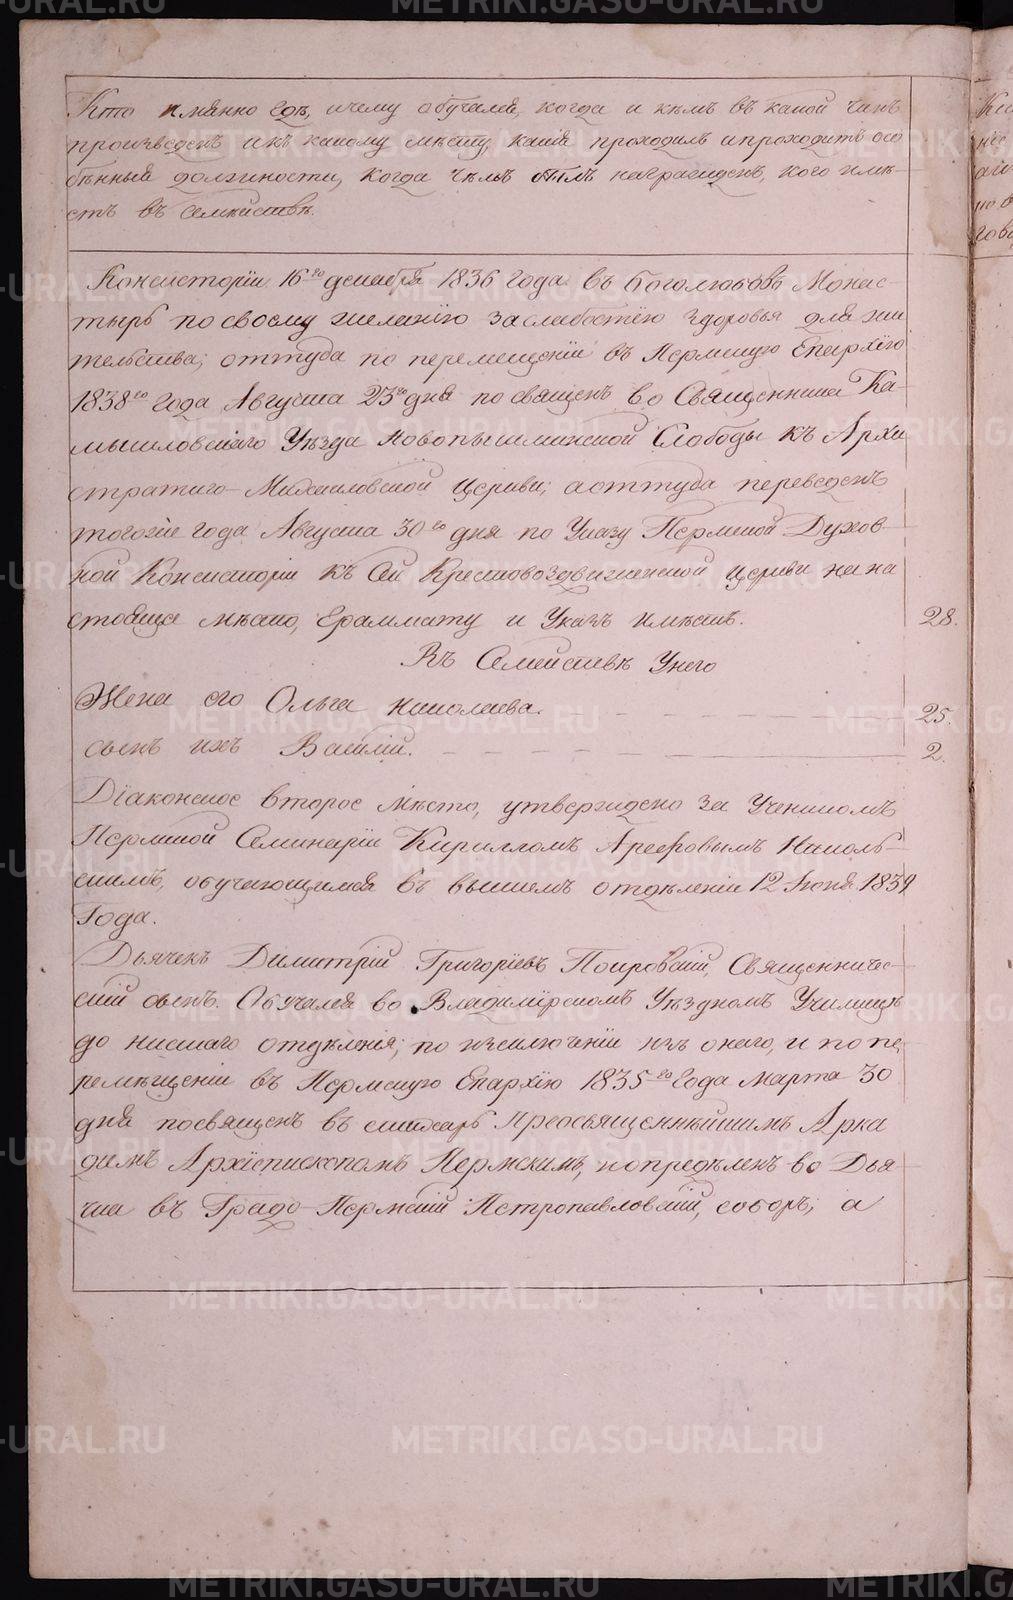 Кто имянно гдѣ, ичему обучался, когда и кѣмъ въ какой чинъ
произведенъ икъ какому мѣсту, какія проходилъ ипроходитъ осо
бѣнныя должности, когда чѣмъ былъ награжденъ, кого имѣ-
етъ въ семействѣ.
Консисторіи 16го декабря 1836 года въ Боголюбовъ Монас-
тырь посвоему желанію заслабостію здоровья для жи
тельства; оттуда по перемещеніи въ Пермскую Епархію
1838го года Августа 23го дня посвященъ во Священника Ка-
мышловскаго Уѣзда Новопышминской Слободы къ Архи
стратиго-Михаиловской Церкви; аоттуда переведенъ
тогоже года Августа 30го дня по Указу Пермской Духов-
ной Консисторіи къ Сей Крестовоздвиженской Церкви нена
стоящее мѣсто, Грамматту и Указъ имѣетъ. 28.
Въ Семействѣ Унего
Жена его Ольга Николаева. 25.
сынъ ихъ Василій. 2.
Діаконское второе мѣсто, утверждено за Ученикомъ
Пермской Семинаріи Кирилломъ Арефовымъ Николь-
скимъ, обучающимся въ высшемъ отдѣленіи 12 Іюня 1839
Года.
Дьячекъ Димитрій Григоріевъ Покровскій, Священничес-
скій сынъ. Обучался во Владимірскомъ Уѣздномъ Училищѣ
до нисшаго отдѣленія; по изключеніи изъ онаго, и попе
ремѣщеніи въ Пермскую Епархію 1835го Года Марта 30
дня посвященъ въ стихарь Преосвященнѣйшимъ Арка
діемъ Архіепископомъ Пермскимъ, иопредѣленъ во Дья-
чка въ Градо-Пермскій Петропавловскій, соборъ; а
METRIKI.GASO-URAL.RU